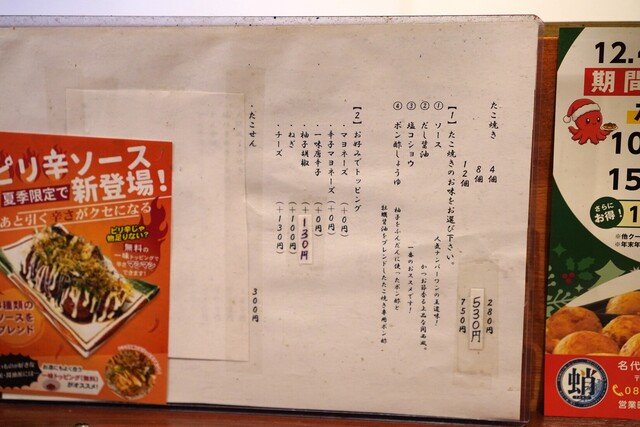 たこ焼き 4個 280円
8個 530円
12個 750円
【1】たこ焼きのお味をお選び下さい。
① ソース 人気ナンバーワンの王道味!
② だし醤油 かつお節香る上品な関西風。
③ 塩コショウ 一番のおススメです!
④ ポン酢しょうゆ 柚子をふんだんに使ったポン酢と
牡蠣醤油をブレンドしたたこ焼き専用ポン酢。
【2】お好みでトッピング
・マヨネーズ (+0円)
・辛子マヨネーズ (+0円)
・一味唐辛子 (+0円)
・柚子胡椒 (+130円)
・ねぎ (+110円)
・チーズ (+130円)
・たこせん 300円
ピリ辛ソース
夏季限定で新登場!
あと引く辛さがクセになる
ピリ辛じゃ
物足りない?
無料の
一味トッピングで
できます!
種類の
ソースを
ブレンド
お酒にもよく合う
一味トッピング(無料)
がオススメ!
12.
期間
10
15
さらに
お得!
※他クー
※年末年
蛸
名代
〒
08
営業日